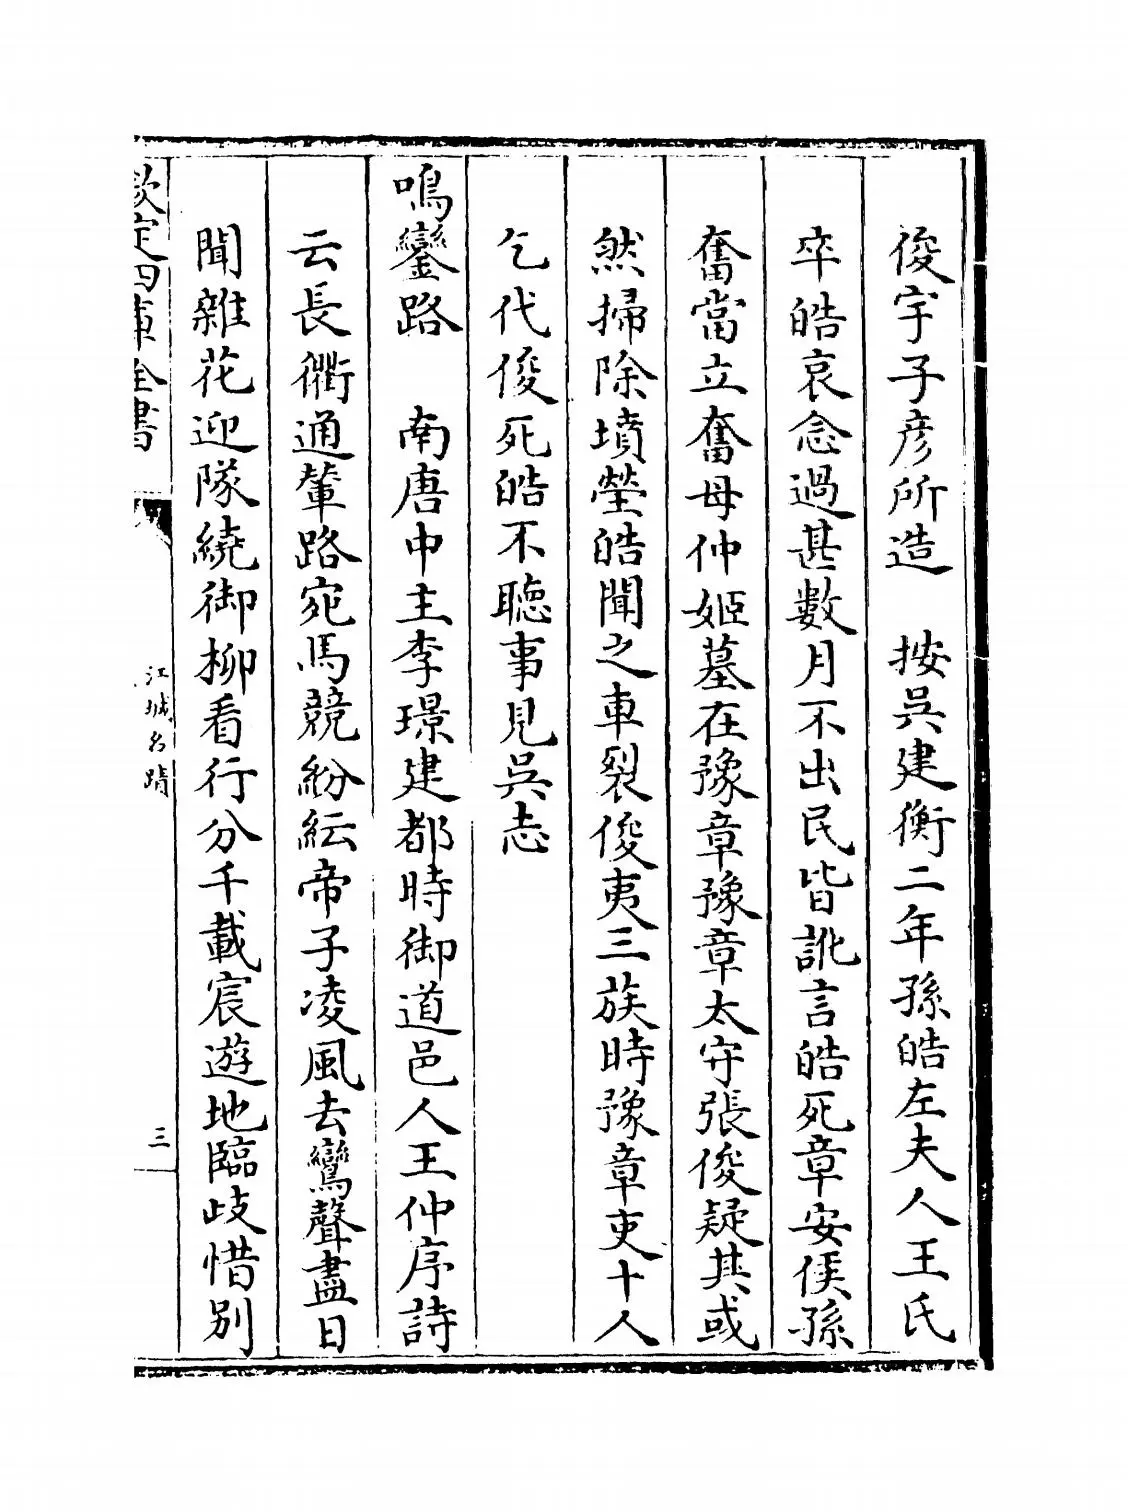 俊字子彦所造　按吳建衡二年孫皓左夫人王氏
卒皓哀念過甚數月不出民皆訛言皓死章安侯孫
奮當立奮母仲姬墓在豫章豫章太守張俊疑其或
然掃除墳塋皓聞之車裂俊夷三族時豫章吏十人
乞代俊死皓不聴事見吳志
鳴鑾路　南唐中主李璟建都時御道邑人王仲序詩
云長衢通輦路宛馬競紛紜帝子凌風去鸞聲盡日
聞雜花迎隊繞御柳看行分千載宸遊地臨歧惜別
欽定四庫全書
江城名蹟
三